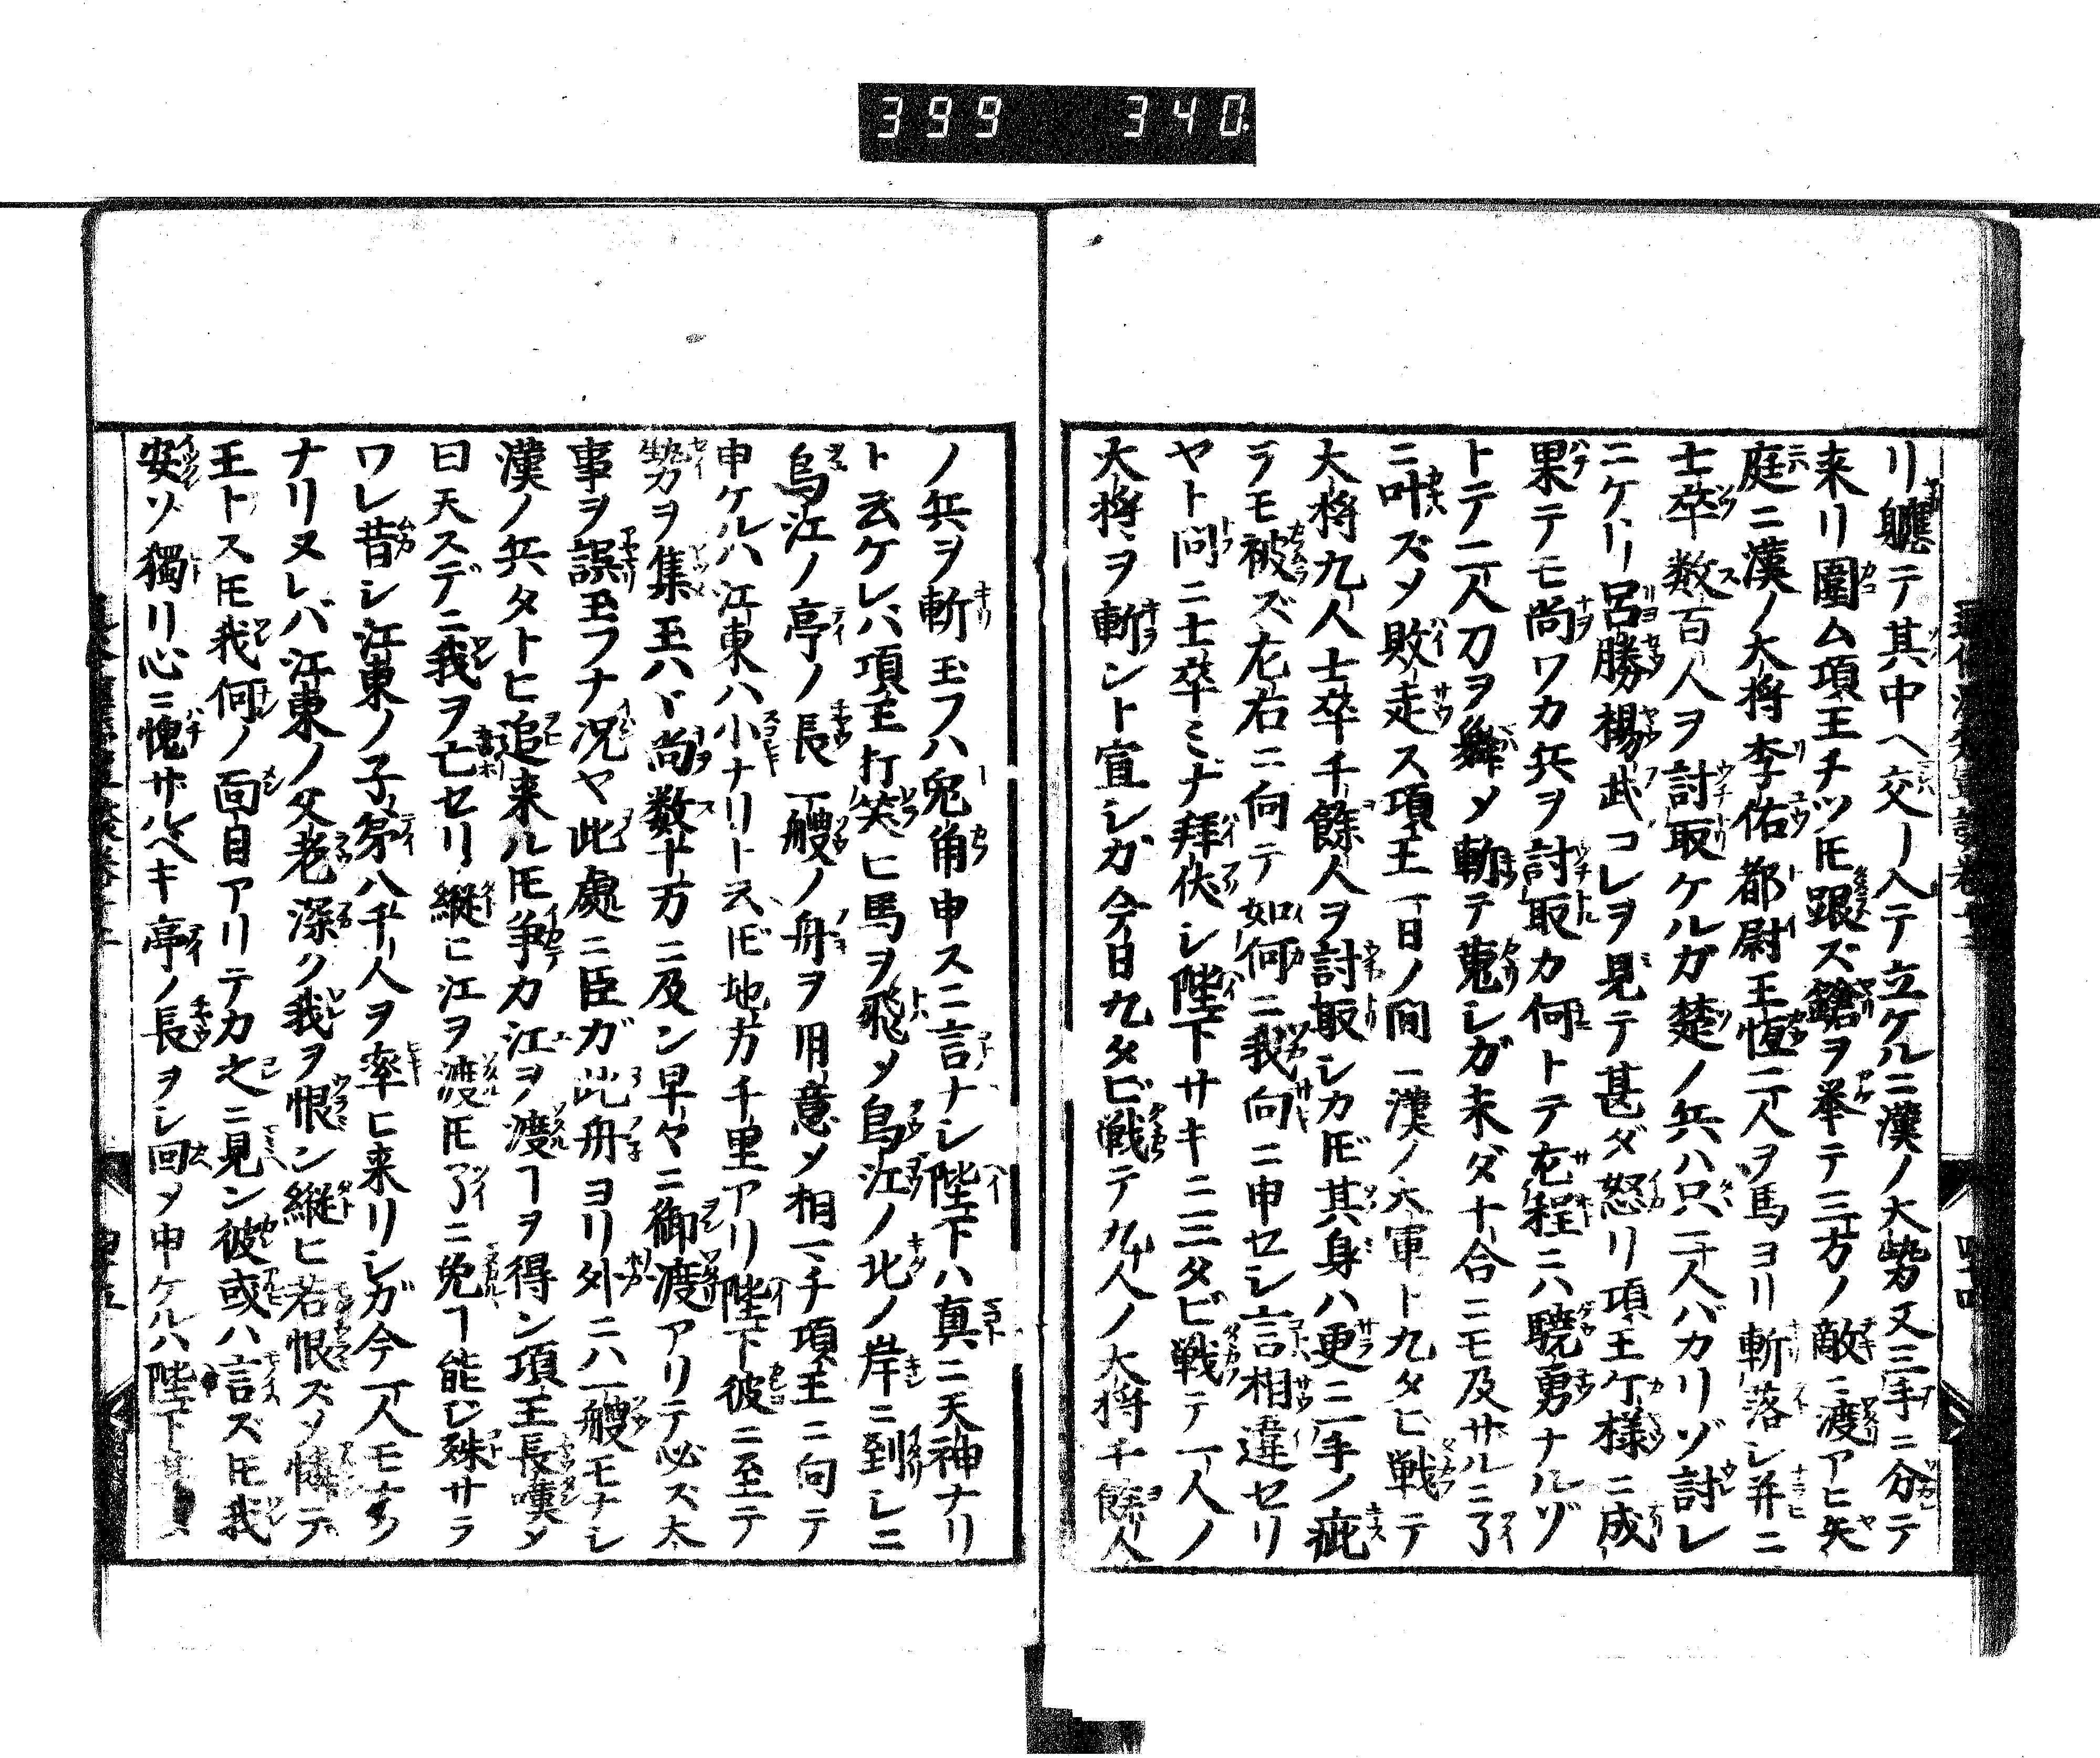 399 340.
リ軈テ其中ヘ交ーリ入テ立ケルニ漢ノ大勢又三手ニ分テ
来リ圍ム項王チツ𪜈跟ズ鎗ヲ挙テ三方ノ敵ニ渡アヒ矢
庭ニ漢ノ大将李佑都尉王恒二人ヲ馬ヨリ斬落レ并ニ
士卒数百人ヲ討取ケルガ楚ノ兵ハ只二人バカリゾ討レ
ニケリ呂勝楊武コレヲ見テ甚ダ怒リ項王ケ様ニ成
果テモ尚ワカ兵ヲ討取カ何トテ左程ニハ驍勇ナルゾ
トテ二人刀ヲ舞メ斬テ蒐レガ未ダ十合ニモ及サルニ了
ニ叶ズメ敗走ス項王一日ノ間ニ漢ノ大軍ト九タヒ戦テ
大将九人士卒千餘人ヲ討取シカ𪜈其身ハ更ニ一手ノ疵
ヲモ被ズ左右ニ向テ如何ニ我向ニ申セシ言相違セリ
ヤト問ニ士卒ミナ拜伏シ陛下サキニ二三タビ戦テ一人ノ
大将ヲ斬ント宣シガ今日九タビ戦テ九人ノ大将千餘人
ノ兵ヲ斬玉フハ兔角申スニ言ナシ陛下ハ真ニ天神ナリ
ト云ケレバ項王打笑ヒ馬ヲ飛メ烏江ノ北ノ岸ニ到レニ
烏江ノ亭ノ長一艘ノ舟ヲ用意メ相マチ項王ニ向テ
申ケルハ江東ハ小ナリト云𪜈地方千里アリ陛下彼ニ至テ
勢ヲ集玉ハヾ尚数十万ニ及ン早々ニ御渡アリテ必ス大
事ヲ誤玉フナ況ヤ此處ニ臣ガ此舟ヨリ外ニハ一艘モナシ
漢ノ兵タトヒ追来ル𪜈争カ江ヲ渡ヿヲ得ン項王長嘆メ
曰天スデニ我ヲ亡セリ縦ヒ江ヲ渡𪜈了ニ免ヿ能ジ殊サラ
ワレ昔シ江東ノ子弟八千人ヲ率ヒ来リシガ今一人モナク
ナリヌレバ江東ノ父老深ク我ヲ恨ン縦ヒ若恨ズメ憐テ
王トス𪜈我何ノ面目アリテカ之ニ見ン彼或ハ言ズ𪜈我
安ソ獨リ心ニ愧サルベキ亭ノ長ヲレ回メ申ケルハ陛下